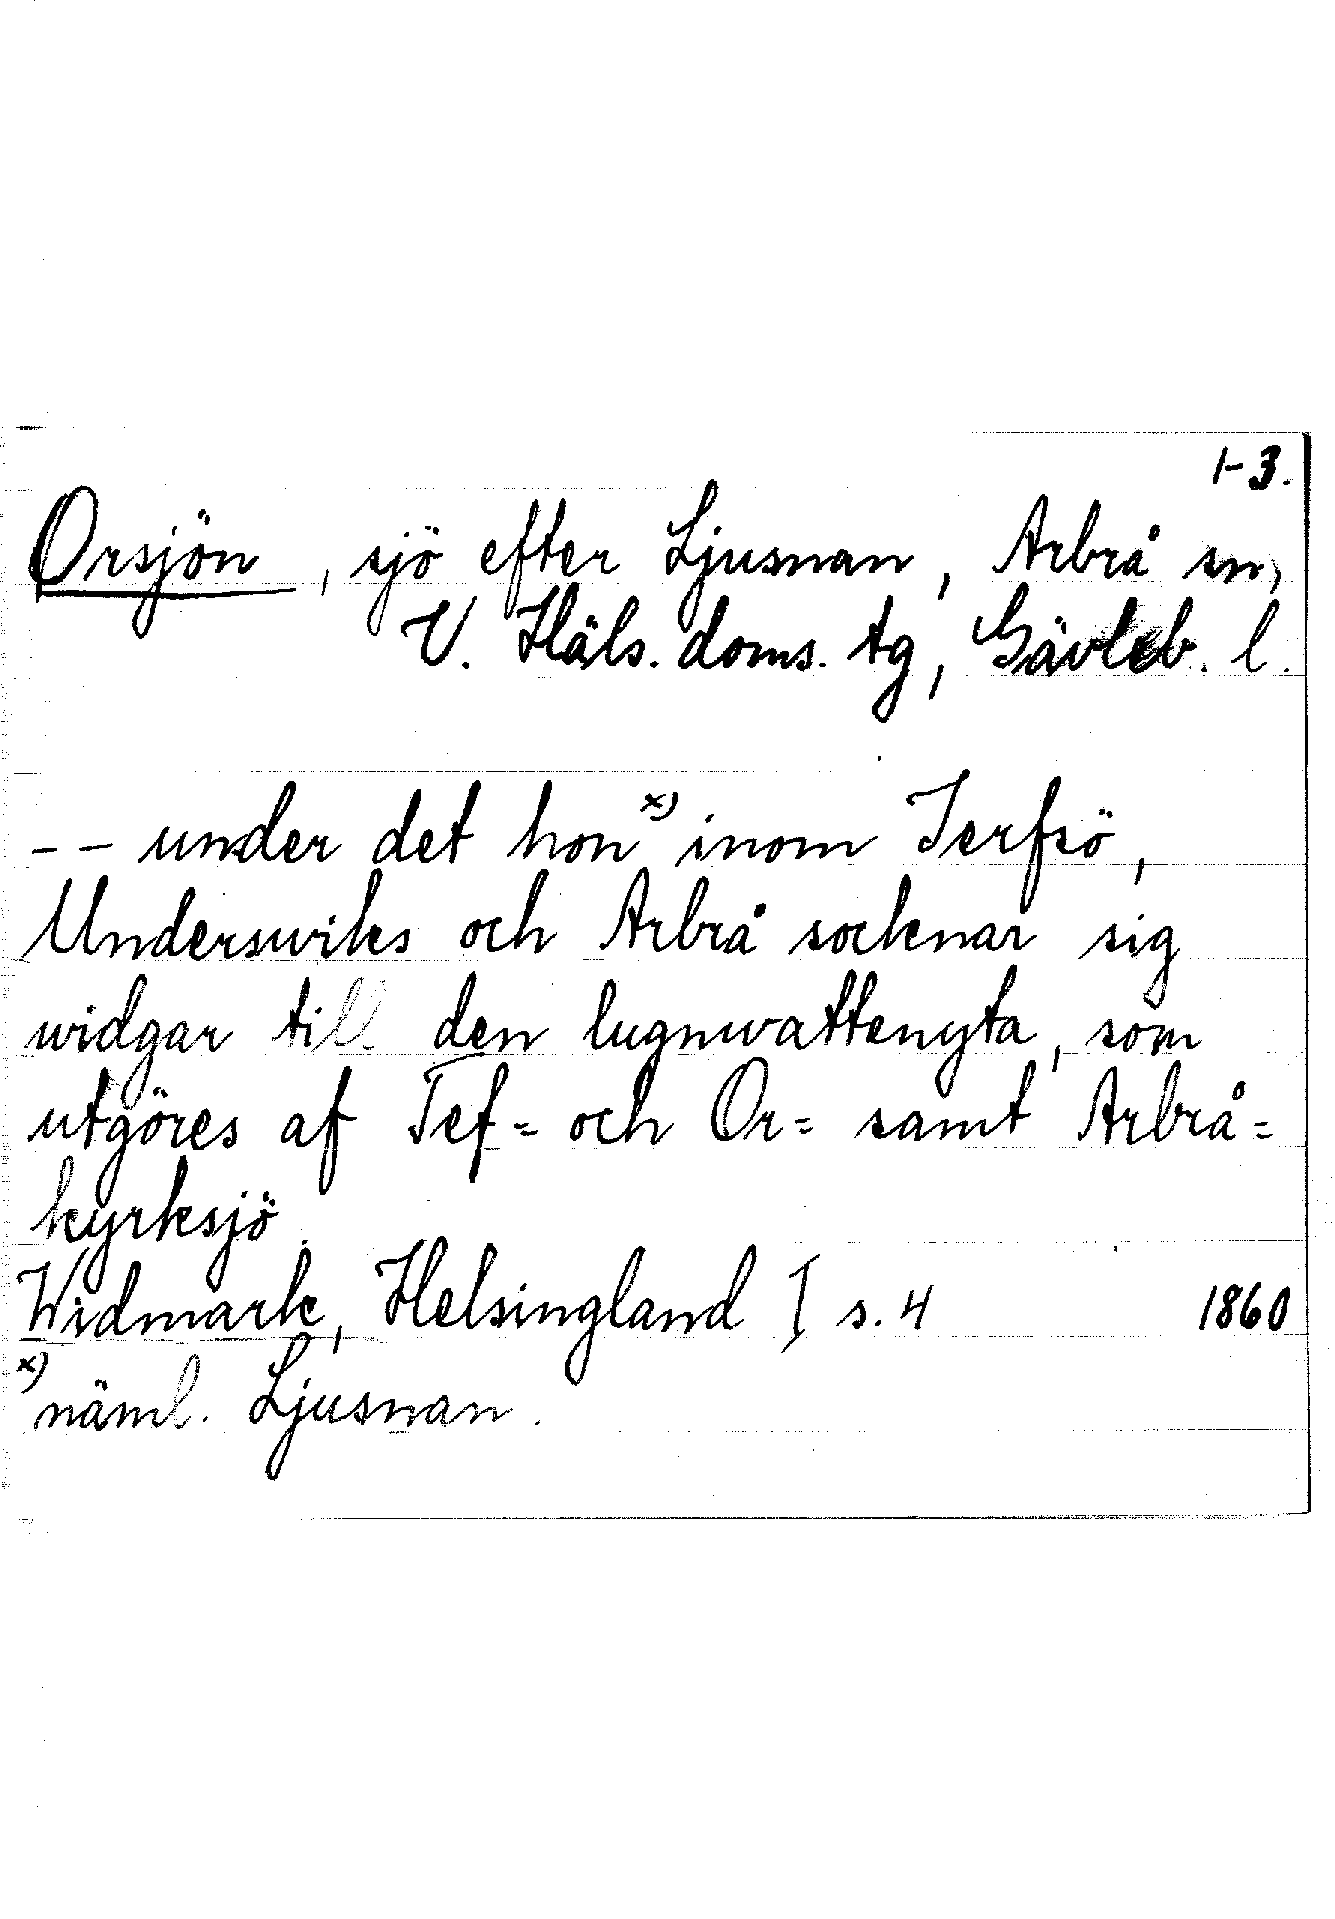 1-3.
Orsjön, sjö efter Ljusnan, Arbrå sn,
V. Häls. doms. tg, Gävleb. l.
-- under det hon x) inom Jerfsö,
Underswiks och Arbrå socknar sig
widgar till den lugnwattenyta, som
utgöres af Tef= och Or= samt Arbrå=
kyrksjö.
Widmark, Helsingland I s. 4 1860
x) näml. Ljusnan.